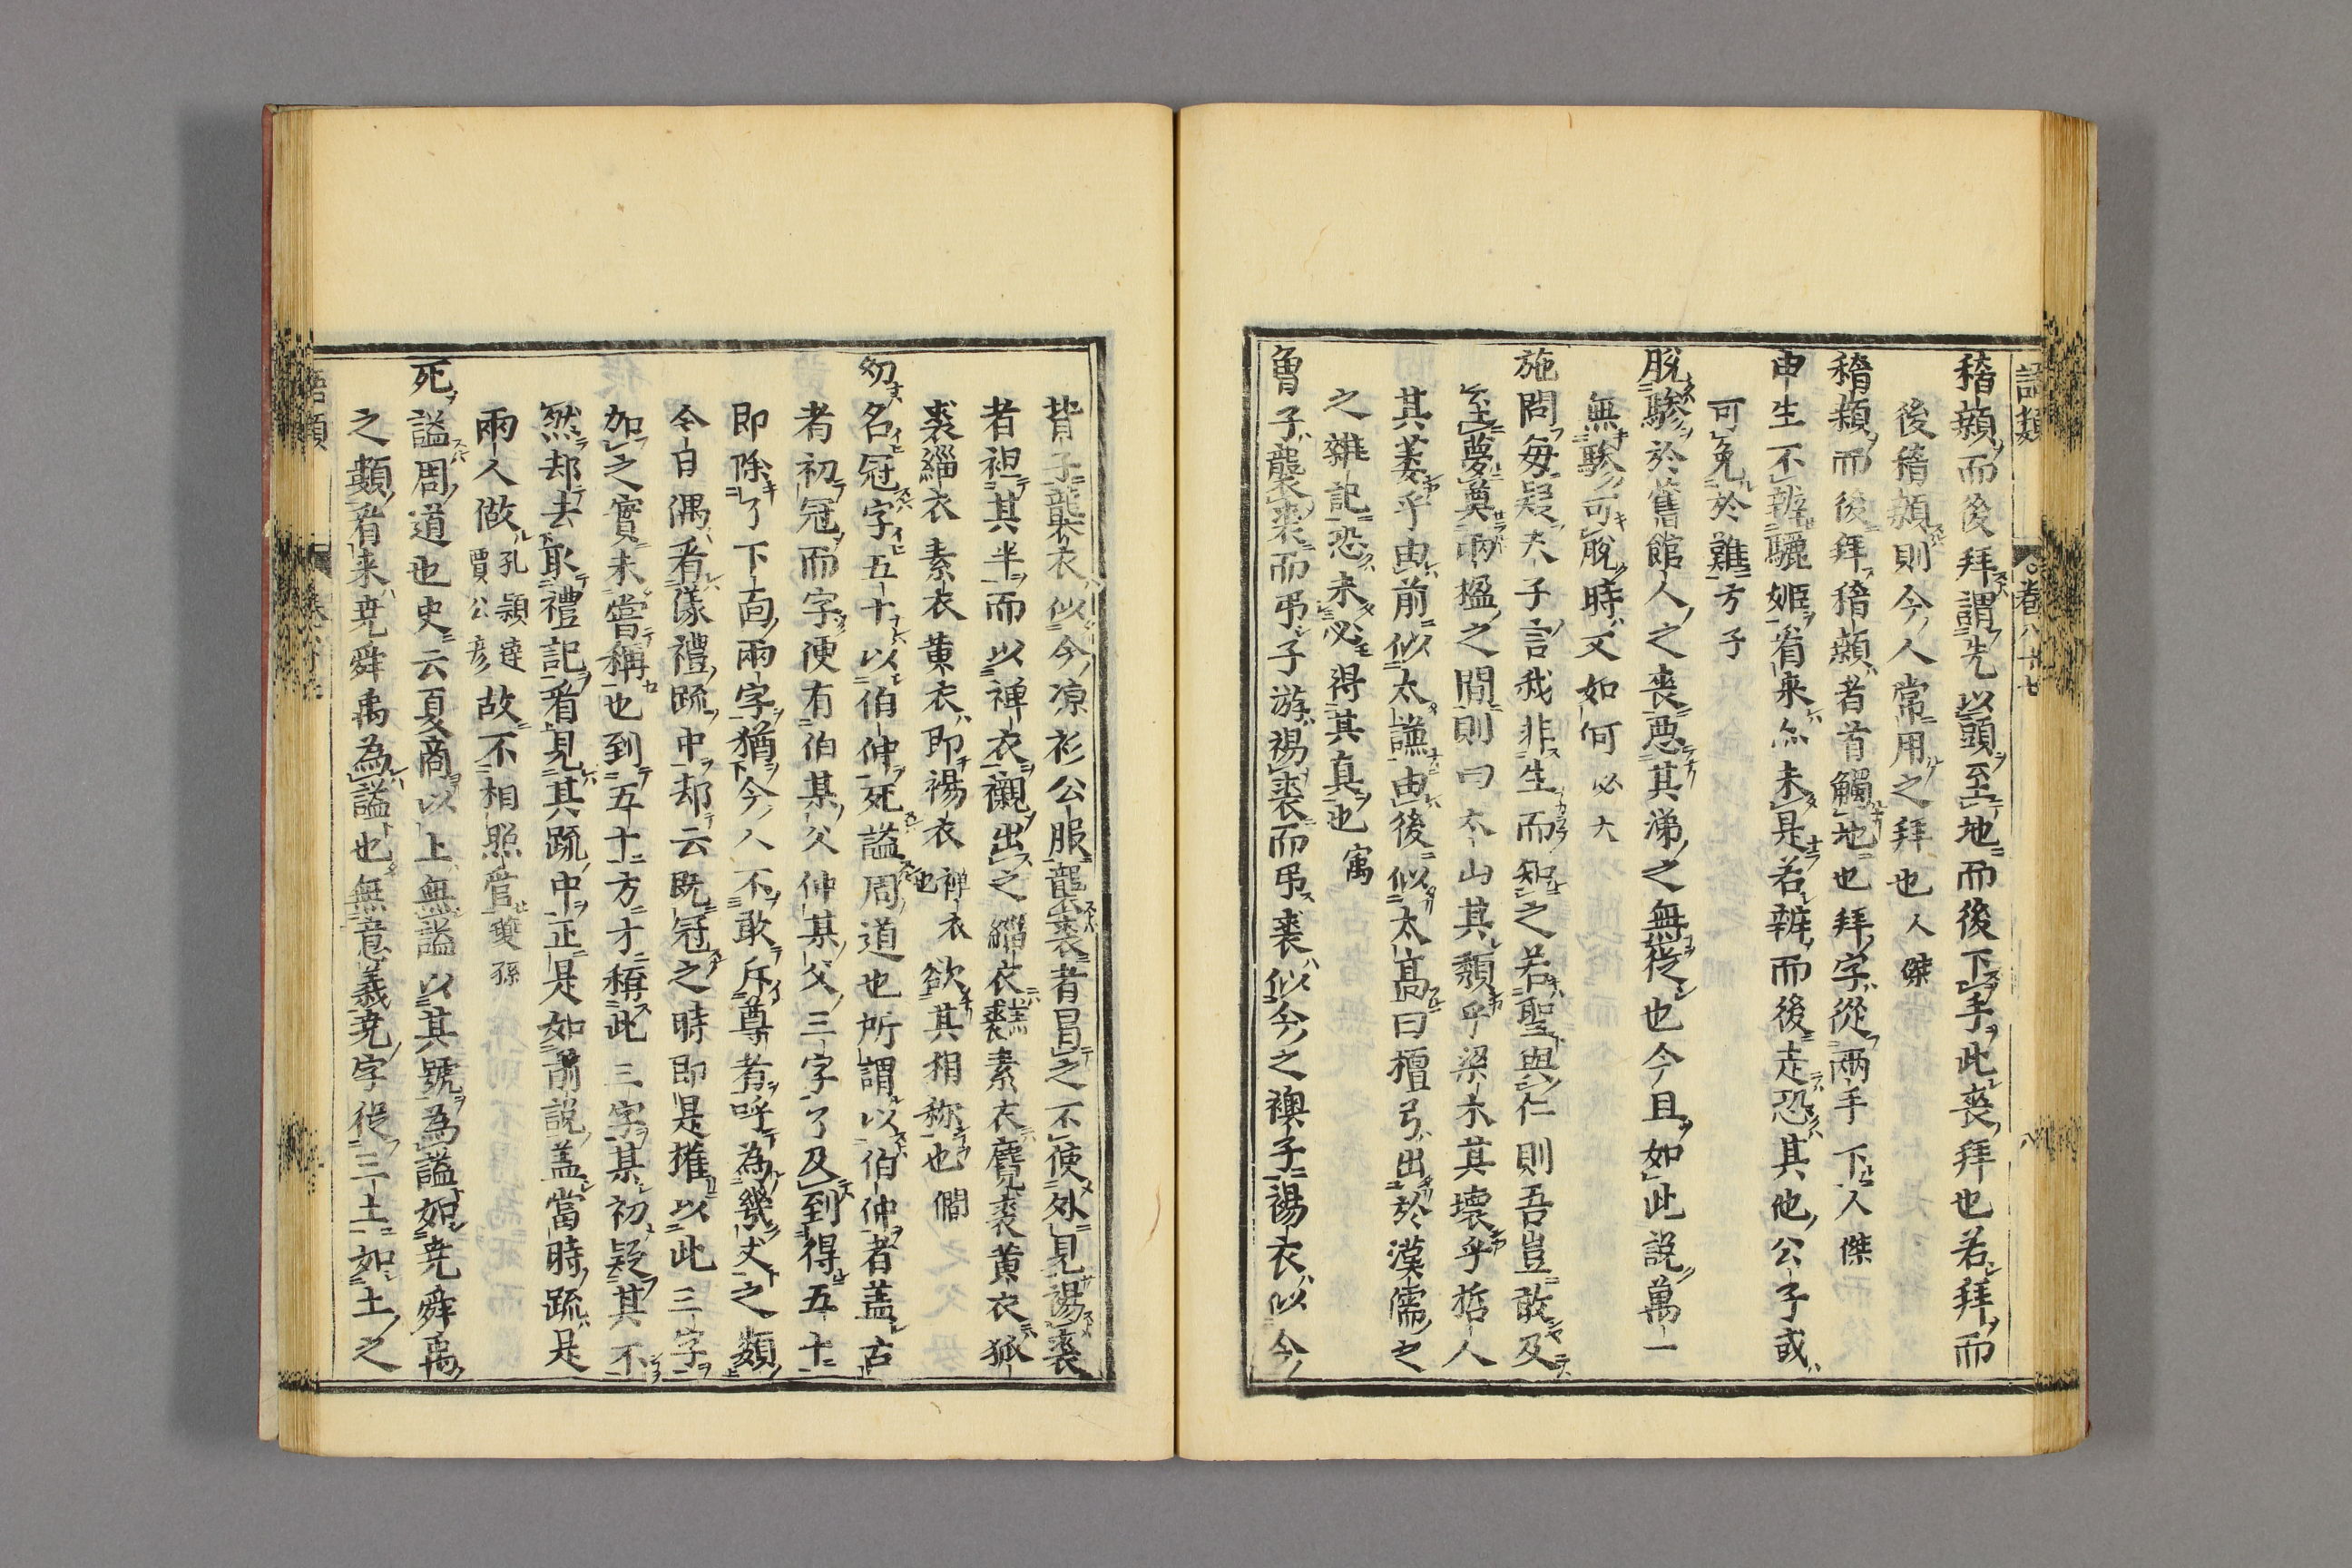 語類 卷八十七 八
稽顙而後拜謂先以頭至地而後下手此喪拜也若拜而
後稽顙則今人常用之拜也人傑
稽顙而後拜稽顙者首觸地也拜字從兩手下人傑
申生不辨驪姬看来亦未是若辨而後走恐其他公子或
可免於難方子
脫驂於舊館人之喪惡其涕之無從也今且如此說萬一
無驂可脫時又如何必大
施問每疑夫子言我非生而知之若聖與仁則吾豈敢及
至夢奠兩楹之間則曰太山其頹乎梁木其壞乎哲人
其萎乎由前似太謙由後似太高曰檀弓出於漢儒之
之雜記恐未必得其真也㝢
魯子襲裘而弔子游裼裘而弔裘似今之襖子裼衣似今
背子襲衣似今凉衫公服襲裘者冒之不使外見裼裘
者袒其半而以禅衣襯出之緇衣羔裘素衣麑裘黄衣狐
裘緇衣素衣黄衣即裼衣禅衣也欲其相称也僩
幼名冠字五十以伯仲死謚周道也所謂以伯仲者盖古
者初冠而字便有伯某父仲某父三字了及到得五十
即除了下面兩字猶今人不敢斥尊者呼為幾丈之類
今日偶看儀禮䟽中却云既冠之時即是權以此三字
加之實未嘗稱也到五十方才稱此三字某初疑其不
然却去取禮記看見其䟽中正是如前説盖當時䟽是
兩人做孔穎達賈公彦故不相照管夔孫
死謚周道也史云夏商以上無謚以其號為謚如尭舜禹
之類看来尭舜禹為謚也無意義尭字從三土如土之
語類